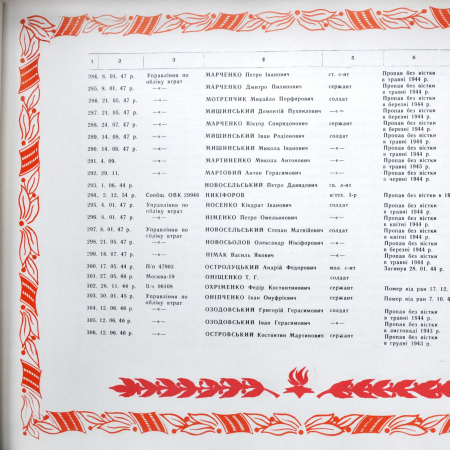 1 2 3 4 5 6
284. 8. 01. 47 р. Управління по МАРЧЕНКО Петро Іванович ст. с-нт Пропав без вісти
обліку втрат в травні 1944 р.
285. 8. 01. 47 р. —«— МАРЧЕНКО Дмитро Пилипович сержант Пропав без вісти
в березні 1944 р.
286. 21. 05. 47 р. —«— МОТРЕНЧИК Михайло Порфирович солдат Пропав без вісти
в березні 1944 р.
287. 21. 05. 47 р. —«— МИШИНСЬКИЙ Дементій Пухимович —«— Пропав без вісти
в травні 1944 р.
288. 24. 07. 47 р. —«— МАРЧЕНКО Віктор Свиридонович сержант Пропав без вісти
в березні 1944 р.
289. 14. 08. 47 р. —«— МИШИНСЬКИЙ Іван Родіонович солдат Пропав без вісти
в травні 1944 р.
290. 14. 08. 47 р. —«— МИШИНСЬКИЙ Микола Іванович —«— Пропав без вісти
в травні 1944 р.
291. 4. 09. МАРТИНЕНКО Микола Антонович —«— Пропав без вісти
в травні 1945 р.
292. 29. 11. МАРТОВИЙ Антон Герасимович —«— Пропав без вісти
в червні 1944 р.
293. 1. 06. 44 р. НОВОСЕЛЬСЬКИЙ Петро Давидович гв. л-нт
294. 2. 12. 54 р. Сообщ. ОВК 29946 НИКІФОРОВ в/тех. 1-р Пропав без вісти в 19
295. 4. 01. 47 р. Управління по НОСЕНКО Кіндрат Іванович солдат Пропав без вісти
обліку втрат в травні 1944 р.
296. 8. 01. 47 р. —«— НІМЕНКО Петро Омелянович —«— Пропав без вісти
в квітні 1944 р.
297. 8. 01. 47 р. Управління по НОВОСЕЛЬСЬКИЙ Степан Матвійович солдат Пропав без вісти
обліку втрат в квітні 1944 р.
298. 21. 05. 47 р. —«— НОВОСЬОЛОВ Олександр Нікіфорович —«— Пропав без вісти
в березні 1944 р.
299. 16. 07. 47 р. —«— НІМАК Василь Якович —«— Пропав без вісти
в травні 1944 р.
300. 17. 05. 44 р. П/п 47903 ОСТРОЛУЦЬКИЙ Андрій Федорович мол. с-нт Загинув 28. 01. 44 р.
301. 27. 05. 46 р. Москва-19 ОНІЩЕНКО Т. Г. солдат
302. 28. 11. 44 р. П/п 06108 ОХРІМЕНКО Федір Костянтинович сержант Помер від ран 17. 12.
303. 30. 01. 45 р. Управління по ОНІПЧЕНКО Іван Онуфрієвич сержант Помер від ран 7. 10. 4
обліку втрат
304. 12. 06. 46 р. ОЗОДОВСЬКИЙ Григорій Герасимович солдат Пропав без вісти
в травні 1944 р.
305. 12. 06. 46 р. —«— ОЗОДОВСЬКИЙ Іван Герасимович —«— Пропав без вісти
в листопаді 1943 р.
306. 12. 06. 46 р. —«— ОСТРОВСЬКИЙ Костянтин Мартинович сержант Пропав без вісти
в грудні 1943 р.